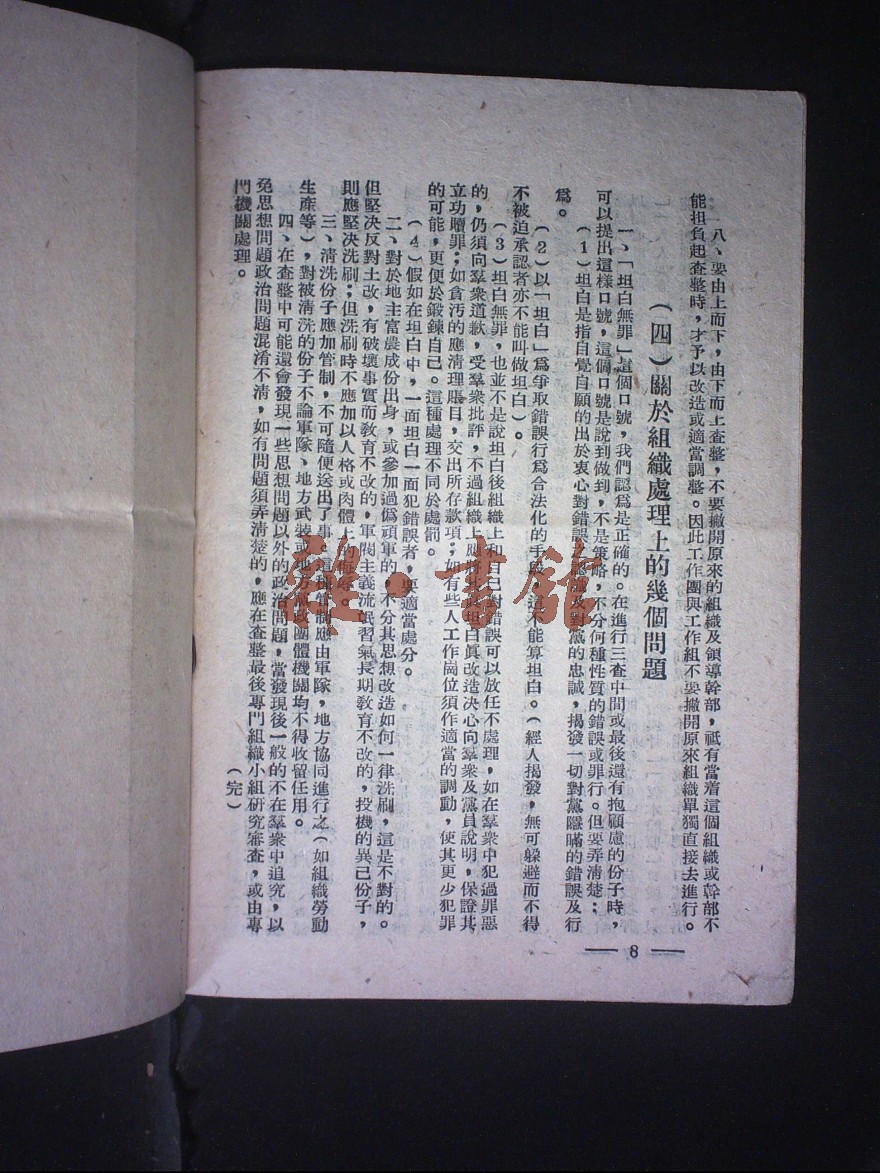 八、要由上而下，由下而上查整，不要撇開原來的組織及領導幹部，祗有當着這個組織或幹部不
能担負起查整時，才予以改造或適當調整。因此工作團與工作組不要撇開原來組織單獨直接去進行。
（四）關於組織處理上的幾個問題
一、「坦白無罪」這個口號，我們認爲是正確的。在進行三查中間或最後還有抱顧慮的份子時，
可以提出這樣口號，這個口號是說到做到，不是策略，不分何種性質的錯誤或罪行。但要弄清楚；
（1）坦白是指自覺自願的出於衷心對錯誤之認識及對黨的忠誠，揭發一切對黨隱瞞的錯誤及行
爲。
（2）以「坦白」爲爭取錯誤行爲合法化的手段，這不能算坦白。（經人揭發，無可躲避而不得
不被迫承認者亦不能叫做坦白）。
（3）坦白無罪，也並不是說坦白後組織上和自己對錯誤可以放任不處理，如在羣衆中犯過罪惡
的，仍須向羣衆道歉，受羣衆批評，不過組織上應將其坦白眞改造决心向羣衆及黨員說明，保證其
立功贖罪；如貪汚的應清理賬目，交出所存款項；如有些人工作崗位須作適當的調動，使其更少犯罪
的可能，更便於鍛鍊自己。這種處理不同於處罰。
（4）假如在坦白中，一面坦白一面犯錯誤者，要適當處分。
二、對於地主富農成份出身，或參加過僞頑軍的，不分其思想改造如何一律洗刷，這是不對的。
但堅决反對土改，有破壞事實而教育不改的，軍閥主義流氓習氣長期敎育不改的，投機的異己份子，
則應堅决洗刷；但洗刷時不應加以人格或肉體上的侮辱。
三、清洗份子應加管制，不可隨便送出了事，這種管制應由軍隊，地方協同進行之（如組織勞動
生產等），對被清洗的份子不論軍隊、地方武裝或地方黨政團體機關均不得收留任用。
四、在查整中可能還會發現一些思想問題以外的政治問題，當發現後一般的不在羣衆中追究，以
免思想問題政治問題混淆不清，如有問題須弄清楚的，應在查整最後專門組織小組研究審查，或由專
門機關處理。
（完）
8